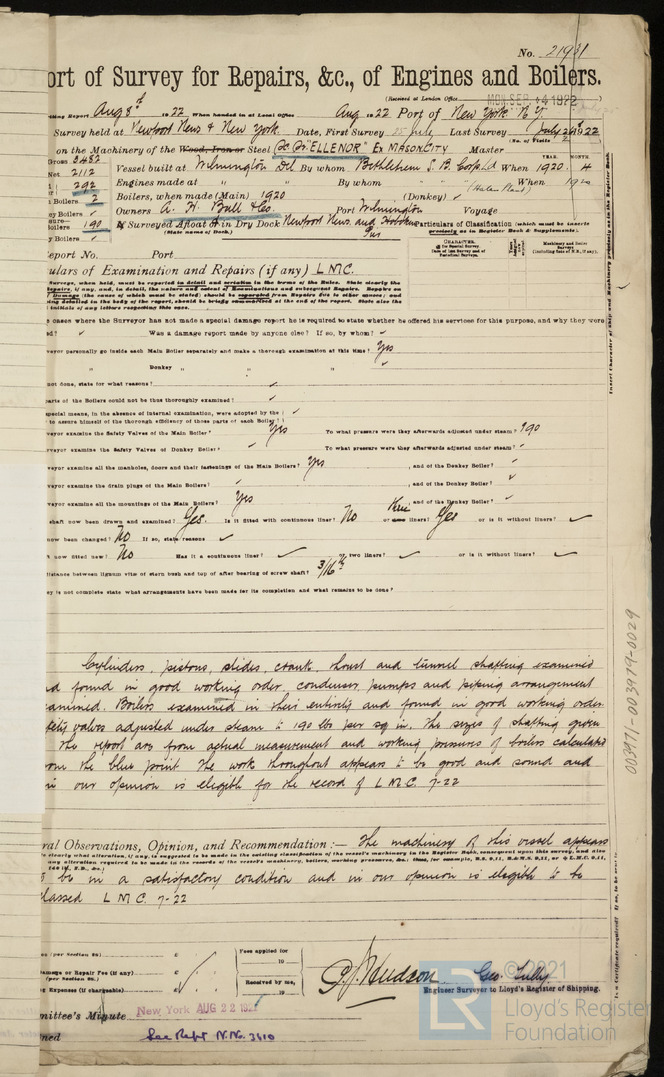 No. 21981
ort of Survey for Repairs, &c., of Engines and Boilers.
(Received at London Office MON. SEP. 4 1922
iting Report Aug 8th 1922 When handed in at Local Office Aug 1922 Port of New York N.Y.
Survey held at Newport News & New York Date, First Survey 25 July Last Survey July 26 1922
(No. of Visits 2
on the Machinery of the Wood, Iron or Steel "ELLENOR" Ex MASON CITY Master
Gross 3482
Net 2112
Vessel built at Wilmington Del By whom Bethlehem S. B. Corp. Ltd When 1920. 4
YEAR. MONTH.
292 Engines made at " " By whom " (Harlan Plant) When 1920
Boilers 2 Boilers, when made (Main) 1920 (Donkey) ✓
y Boilers ✓ Owners A. H. Bull & Co. Port Wilmington Voyage
oilers 190 If Surveyed Afloat or in Dry Dock Newport News and Hoboken
(State name of Dock.)
y Boilers ✓
Particulars of Classification (which must be inserted precisely as in Register Book & Supplements).
CHARACTER.
Report No. Port
ulars of Examination and Repairs (if any) L M C.
Surveys, when held, must be reported in detail and seriatim in the terms of the Rules. State clearly the
e cases where the Surveyor has not made a special damage report he is required to state whether he offered his services for this purpose, and why they were
ed? ✓ Was a damage report made by anyone else? If so, by whom? ✓
veyor personally go inside each Main Boiler separately and make a thorough examination at this time? Yes
" Donkey " " " ✓
not done, state for what reasons? ✓
parts of the Boilers could not be thus thoroughly examined? ✓
special means, in the absence of internal examination, were adopted by the
to assure himself of the thorough efficiency of those parts of each Boiler? ✓
veyor examine the Safety Valves of the Main Boiler? Yes To what pressure were they afterwards adjusted under steam? 190
veyor examine the Safety Valves of Donkey Boiler? ✓ To what pressure were they afterwards adjusted under steam? ✓
veyor examine all the manholes, doors and their fastenings of the Main Boilers? Yes , and of the Donkey Boiler? ✓
veyor examine the drain plugs of the Main Boilers? ✓ , and of the Donkey Boiler? ✓
veyor examine all the mountings of the Main Boilers? Yes , and of the Donkey Boiler? ✓
shaft now been drawn and examined? Yes. Is it fitted with continuous liner? No or liners? Yes or is it without liners? ✓
now been changed? No If so, state reasons ✓
t now fitted new? No Has it a continuous liner? ✓ two liners? ✓ or is it without liners? ✓
distance between lignum vitæ of stern bush and top of after bearing of screw shaft? 3/16th"
ey is not complete state what arrangements have been made for its completion and what remains to be done?
Cylinders, pistons, slides, crank, thrust and tunnel shafting examined
d found in good working order. condenser, pumps and piping arrangement
amined. Boilers examined in their entirety and found in good working order
fety valves adjusted under steam to 190 lbs per sq in. The sizes of shafting given
the report are from actual measurement and working pressures of boilers calculated
rom the blue print The work throughout appears to be good and sound and
in our opinion is eligible for the record of L M C. 7-22
ral Observations, Opinion, and Recommendation:— The machinery of this vessel appears
to be in a satisfactory condition and in our opinion is eligible to be
classed L M C. 7-22
ee (per Section 28) £ Fees applied for
19
amage or Repair Fee (if any) £
(per Section 28.)
ng Expenses (if chargeable) £ Received by me,
19
G. J. Hudson Geo. Tully
Engineer Surveyor to Lloyd's Register of Shipping.
mittee's Minute New York AUG 22 1922
ned See Rept N.No. 3610
Insert Character of Ship and Machinery precisely as in the Register Book.
003971-003979-0029
© 2021
Lloyd's Register
Foundation